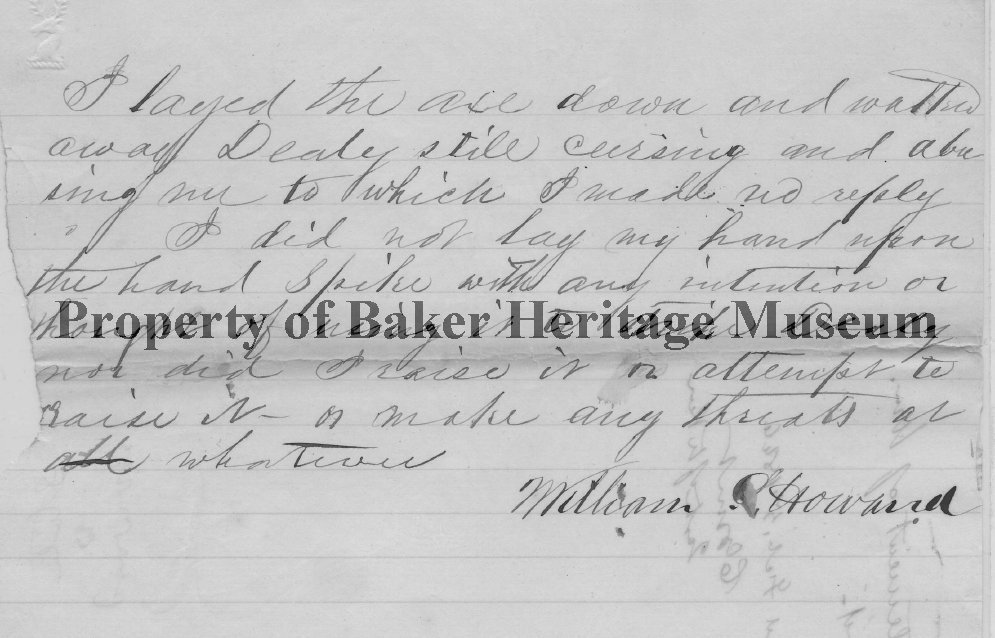 I layed the axe down and walked
away Dealy still cursing and abu
sing me to which I made no reply
I did not lay my hand upon
the hand spike with any intention or
Property of Baker Heritage Museum
thought of using it to strike Dealy
nor did I raise it or attempt to
raise it - or make any threats at
all whatever
William S. Howard